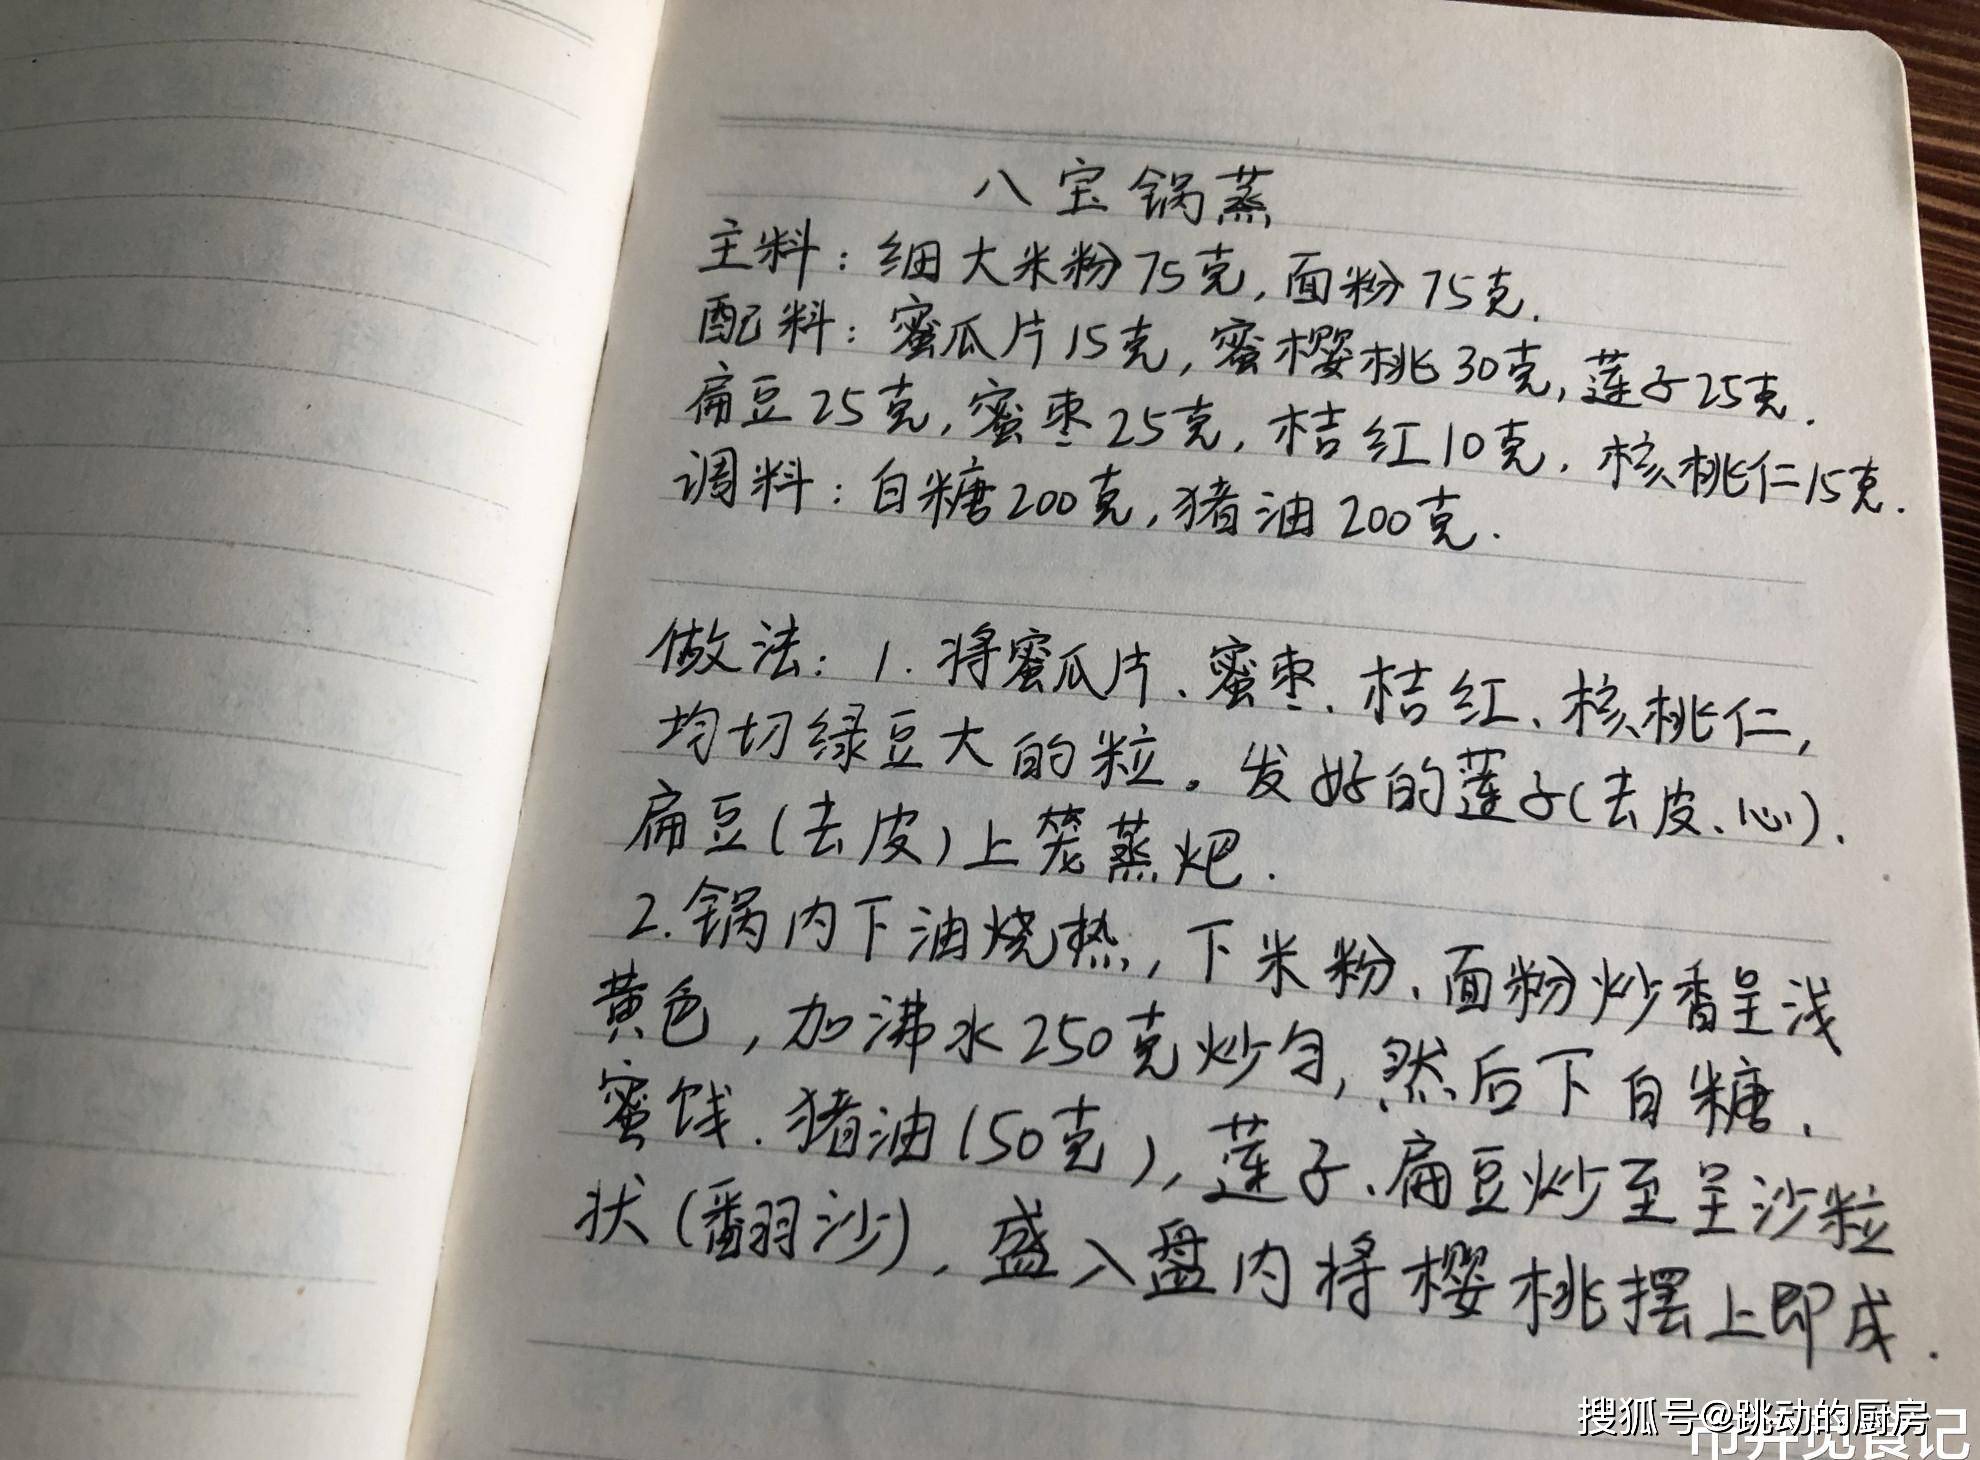 八宝锅蒸
主料：细大米粉75克，面粉75克．
配料：蜜瓜片15克，蜜樱桃30克，莲子25克．
扁豆25克，蜜枣25克，桔红10克．核桃仁15克．
调料：白糖200克，猪油200克．
做法：1．将蜜瓜片、蜜枣、桔红、核桃仁，
均切绿豆大的粒。发好的莲子（去皮、心）．
扁豆（去皮）上笼蒸𤆵．
2．锅内下油烧热，下米粉、面粉炒香呈浅
黄色，加沸水250克炒匀，然后下白糖、
蜜饯．猪油（50克），莲子、扁豆炒至呈沙粒
状（翻沙），盛入盘内将樱桃摆上即成．
搜狐号@跳动的厨房
市井觅食记